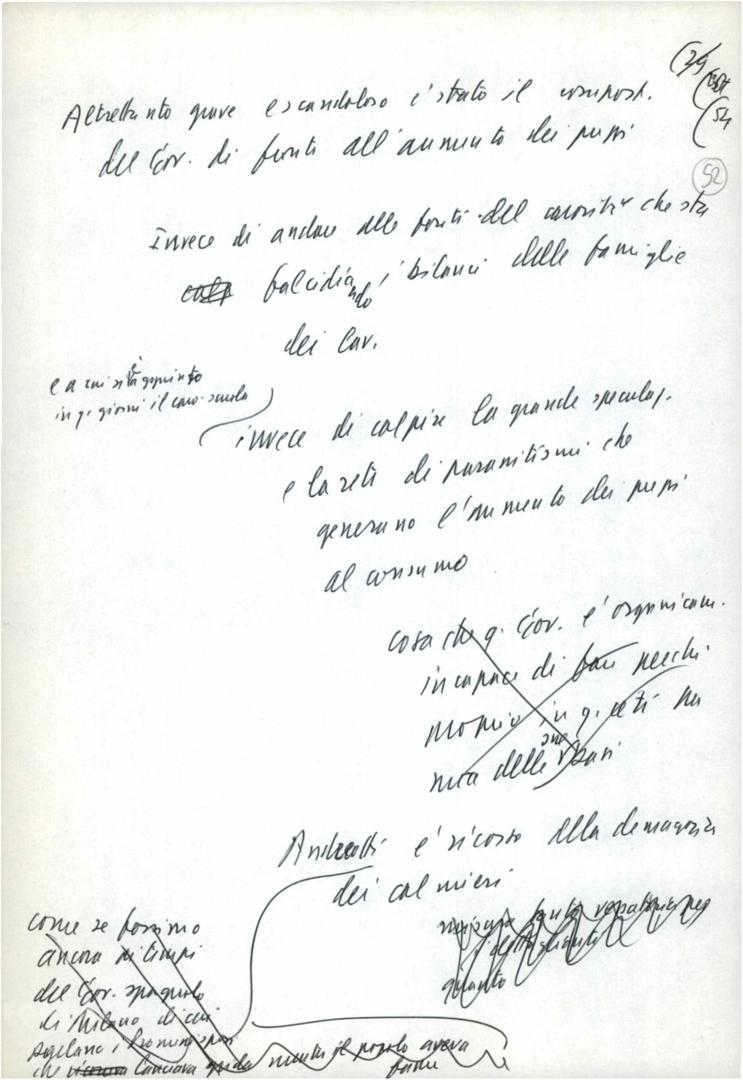 (24
(52
Altrettanto grave e scandaloso è stato il comport.
del Gov. di fronte all'aumento dei prezzi
Invece di andare alle fonti del carovita che sta
falcidiando i bilanci delle famiglie
dei lav.
e a cui si è aggiunto
in q. giorni il caro-scuola
invece di colpire la grande speculaz.
e la rete di parassitismi che
generano l'aumento dei prezzi
al consumo
cosa che q. Gov. è organicam.
incapace di fare perché
proprio in q. ceti ha
una delle sue basi
Andreotti è ricorso alla demagogia
dei calmieri
come se fossimo
ancora ai tempi
del Gov. spagnolo
di Milano di cui
parlano i Promessi sposi
che lanciava grida mentre il popolo aveva
fame